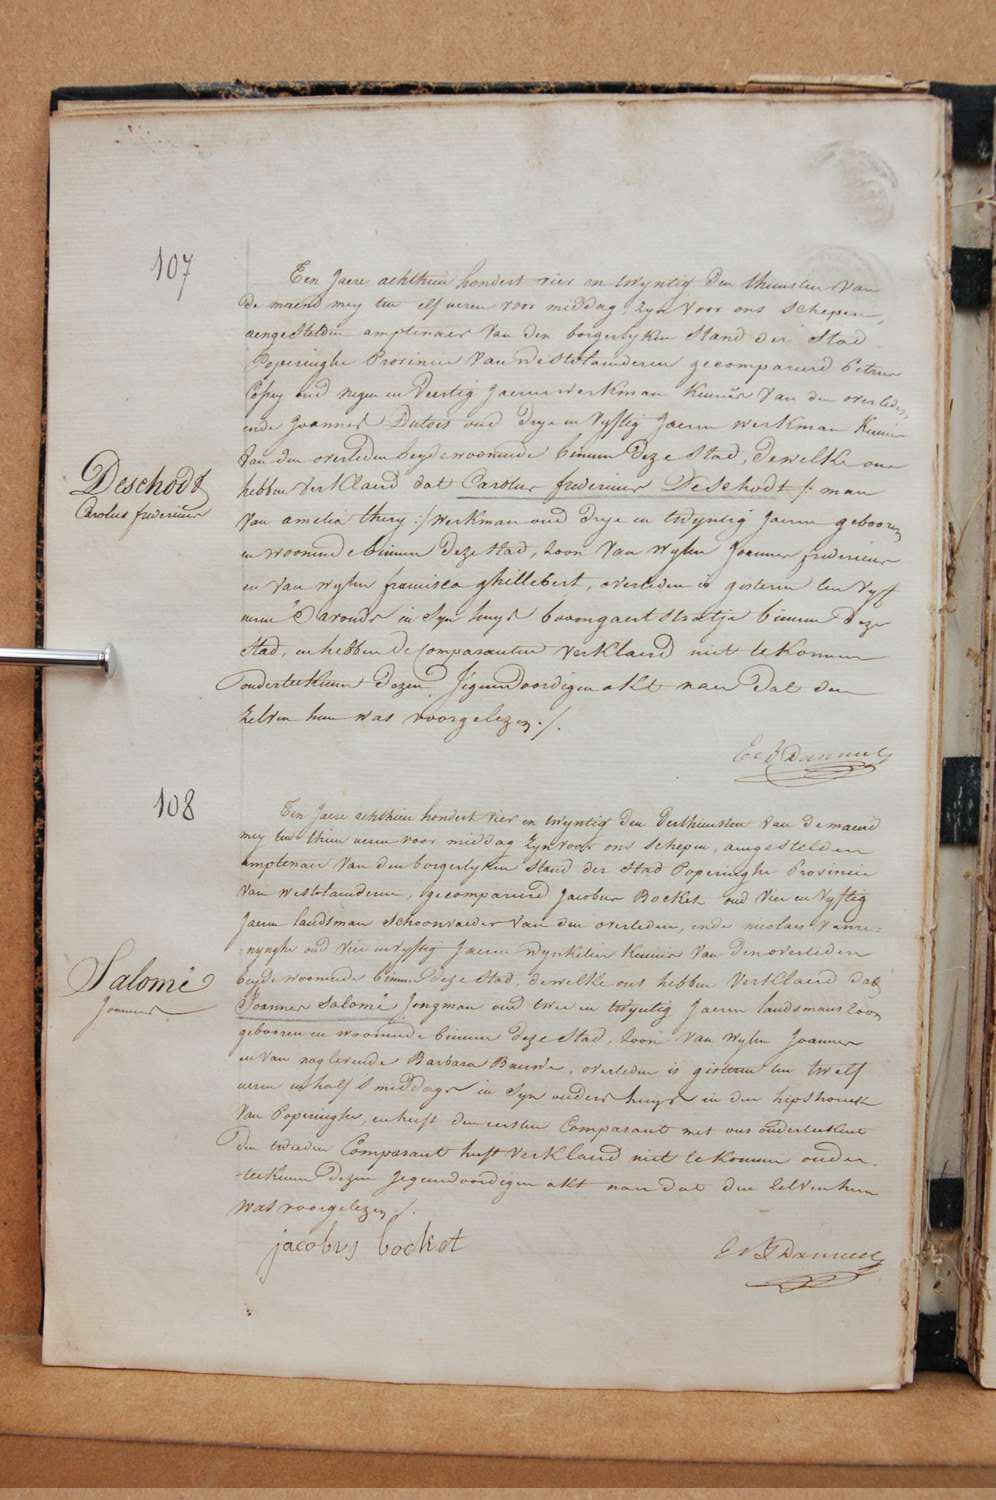 107
Een Jaere achthien hondert vier en twyntig den thiensten van
de maend mey ten elf ueren voor middag, zyn voor ons schepen,
aengestelden amptenaer van den borgerlyken Stand der Stad
Poperinghe Provincie van Westvlaenderen gecompareerd Petrus
oud negen en Veertig Jaeren werkman Kennis van den overled-
ende Joannes Dutois oud Drye en Vyftig Jaeren werkman Kennis
van den overleden beyde woonende binnen Deze Stad, Dewelke ons
hebben Verklaerd dat Carolus fredericus Deschodt /: man
Deschodt
Carolus fredericus
van amelia thery :/ werkman oud Drye en twyntig Jaeren gebooren
en woonende binnen Deze stad, zoon van wylen Joannes fredericus
en van wylen francisca ghillebert, overleden is gisteren ten vyf
ueren S'avonds in Syn huys boomgaert Straetje binnen Deze
Stad, en hebben de Comparanten verklaerd niet te konnen
onderteekenen Dezen Jegenwoordigen akt naer Dat den
zelven hun was voorgelezen ./.
108
Een Jaere achthien hondert vier en twyntig Den Derthiensten van de maend
mey ten thien ueren voor middag zyn voor ons schepen, aengestelden
amptenaer van den borgerlyken Stand der Stad Poperinghe Provincie
van Westvlaenderen, gecompareerd Jacobus Bocket oud Vier en Vyftig
Jaeren landsman Schoonvader van den overleden, ende nicolas Vanre-
nynghe oud vier en vyftig Jaeren wynkelier Kennis van Den overleden
beyde woonende binnen Deze Stad, dewelke ons hebben Verklaerd dat
Salomé
Joannes
Joannes Salomé Jongman oud twee en twyntig Jaeren landsmans zoon
gebooren en woonende binnen Deze Stad, zoon van wylen Joannes
en van naglevende Barbara overleden is gisteren ten twelf
ueren en half S middags in Syn ouders huys in den hipshouck
van Poperinghe, en heeft den eersten Comparant met ons onderteekent
Den tweeden Comparant heeft verklaerd niet te konnen onder-
teekenen Dezen Jegenwoordigen akt naer dat den zelven hun
was voorgelezen ./.
jacobus bocket